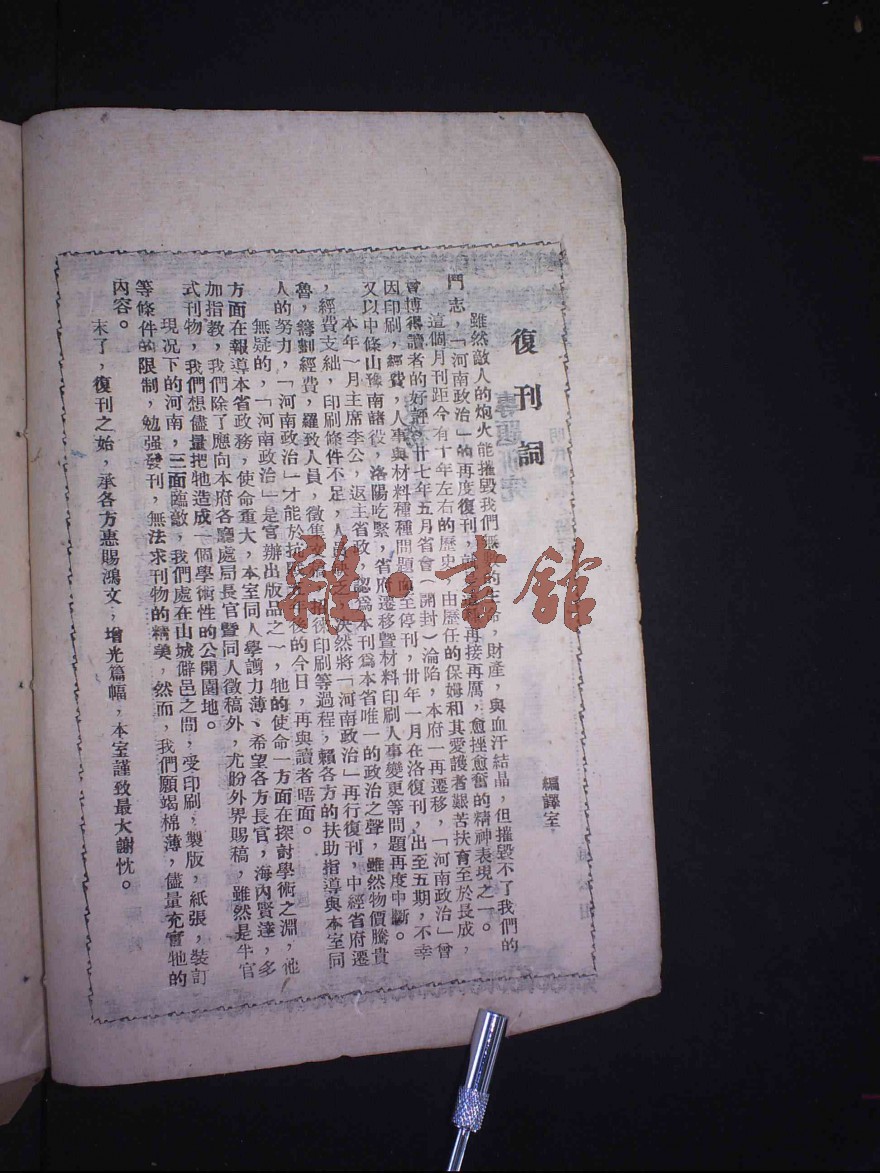 復刊詞
編譯室
雖然敵人的炮火能摧毀我們無的生命，財產，與血汗結晶，但摧毀不了我們的
鬥志，「河南政治」的再度復刊，再接再厲，愈挫愈奮的精神表現之一。
這個月刊距今有十年左右的歷史，由歷任的保姆和其愛護者艱苦扶育至於長成，
會博得讀者的好評，廿七年五月省會（開封）淪陷，本府一再遷移，「河南政治」曾
因印刷，經費，人事與材料種種問題至停刊，卅年一月在洛復刊，出至五期，不幸
又以中條山豫南諸役，洛陽吃緊，省府遷移暨材料印刷人事變更等問題再度中斷。
本年一月主席李公，返主省政，認爲本刊爲本省唯一的政治之聲，雖然物價騰貴
，經費支絀，印刷條件不足，人決然將「河南政治」再行復刊，中經省府遷
魯，籌劃經費，羅致人員，徵集印刷等過程，賴各方的扶助指導與本室同
人的努力，「河南政治」才能於抗年後的今日，再與讀者晤面。
無疑的，「河南政治」是官辦出版品之一，牠的使命一方面在探討學術之淵，他
方面在報導本省政務，使命重大，本室同人學識力薄、希望各方長官，海內賢達，多
加指教，我們除了應向本府各廳處局長官暨同人徵稿外，尤盼外界賜稿，雖然是半官
式刊物，我們想儘量把牠造成一個學術性的公開園地。
現况下的河南，三面臨敵，我們處在山城僻邑之間，受印刷，製版，紙張，裝訂
等條件的限制，勉强發刊，無法求刊物的精美，然而，我們願竭棉薄，儘量充實牠的
內容。
末了，復刊之始，承各方惠賜鴻文，增光篇幅，本室謹致最大謝忱。
雜·書館